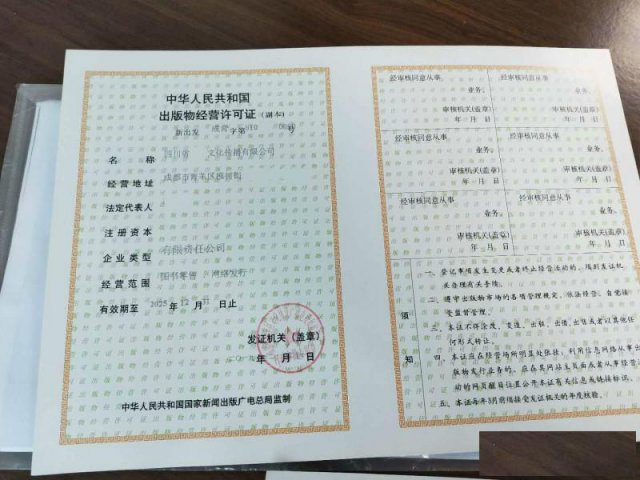 中华人民共和国
出版物经营许可证(副本)
新出发 成青 字第 号
名称 四川省 文化传播有限公司
经营地址 成都市青羊区
法定代表人
注册资本
企业类型 有限责任公司
经营范围 图书零售、网络发行
有效期至 2025年12月31日止
发证机关(盖章)
年 月 日
中华人民共和国国家新闻出版广电总局监制
经审核同意从事
业务。
审核机关(盖章)
年 月 日
经审核同意从事
业务。
审核机关(盖章)
年 月 日
经审核同意从事
业务。
审核机关(盖章)
年 月 日
经审核同意从事
业务。
审核机关(盖章)
年 月 日
经审核同意从事
业务。
审核机关(盖章)
年 月 日
经审核同意从事
业务。
审核机关(盖章)
年 月 日
须知
一、登记事项发生变更或者终止经营活动的,须到发证机
关办理有关手续。
二、遵守出版物市场的各项管理规定,依法经营,自觉接
受监督管理。
三、本证不得涂改、变造、出租、出借、出售或者以其他任
何形式转让。
四、本证应在经营场所明显处张挂;利用信息网络从事出
版物发行业务的,应在其网站主页面或者从事经营活
动的网页醒目位置公开本证有关信息或链接标识。
五、本证每年3月前须接受发证机关的年度核验。